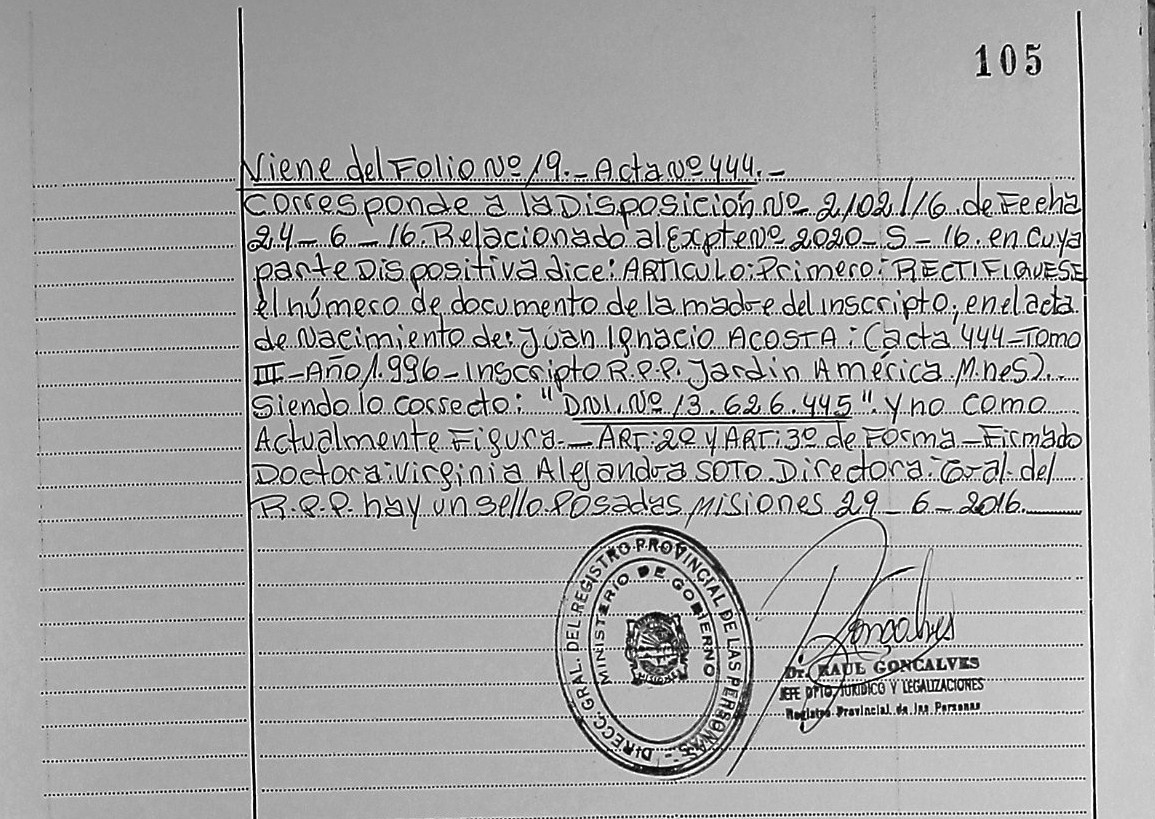 105
Viene del Folio Nº 19.- Acta Nº 444.-
Corresponde a la Disposición Nº 2102/16 de Fecha
24-6-16. Relacionado al Expte Nº 2020-S-16. en cuya
parte Dispositiva dice: ARTICULO: Primero: RECTIFIQUESE
el número de documento de la madre del inscripto; en el acta
de Nacimiento de: Juan Ignacio ACOSTA: (acta 444-Tomo
III-Año 1.996-Inscripto R.P.P. Jardin América. M.nes).
Siendo lo correcto: "DNI. Nº 13.626.445". y no como
Actualmente Figura.-ART: 2º y ART: 3º de Forma-Firmado
Doctora: Virginia Alejandra SOTO. Directora. Gral. del
R.P.P. hay un sello. Posadas, Misiones 29-6-2016.
DIRECC. GRAL. DEL REGISTRO PROVINCIAL DE LAS PERSONAS
MINISTERIO DE GOBIERNO
MISIONES
Goncalves
Dr. RAUL GONCALVES
JEFE DPTO. JURIDICO Y LEGALIZACIONES
Registro Provincial de las Personas